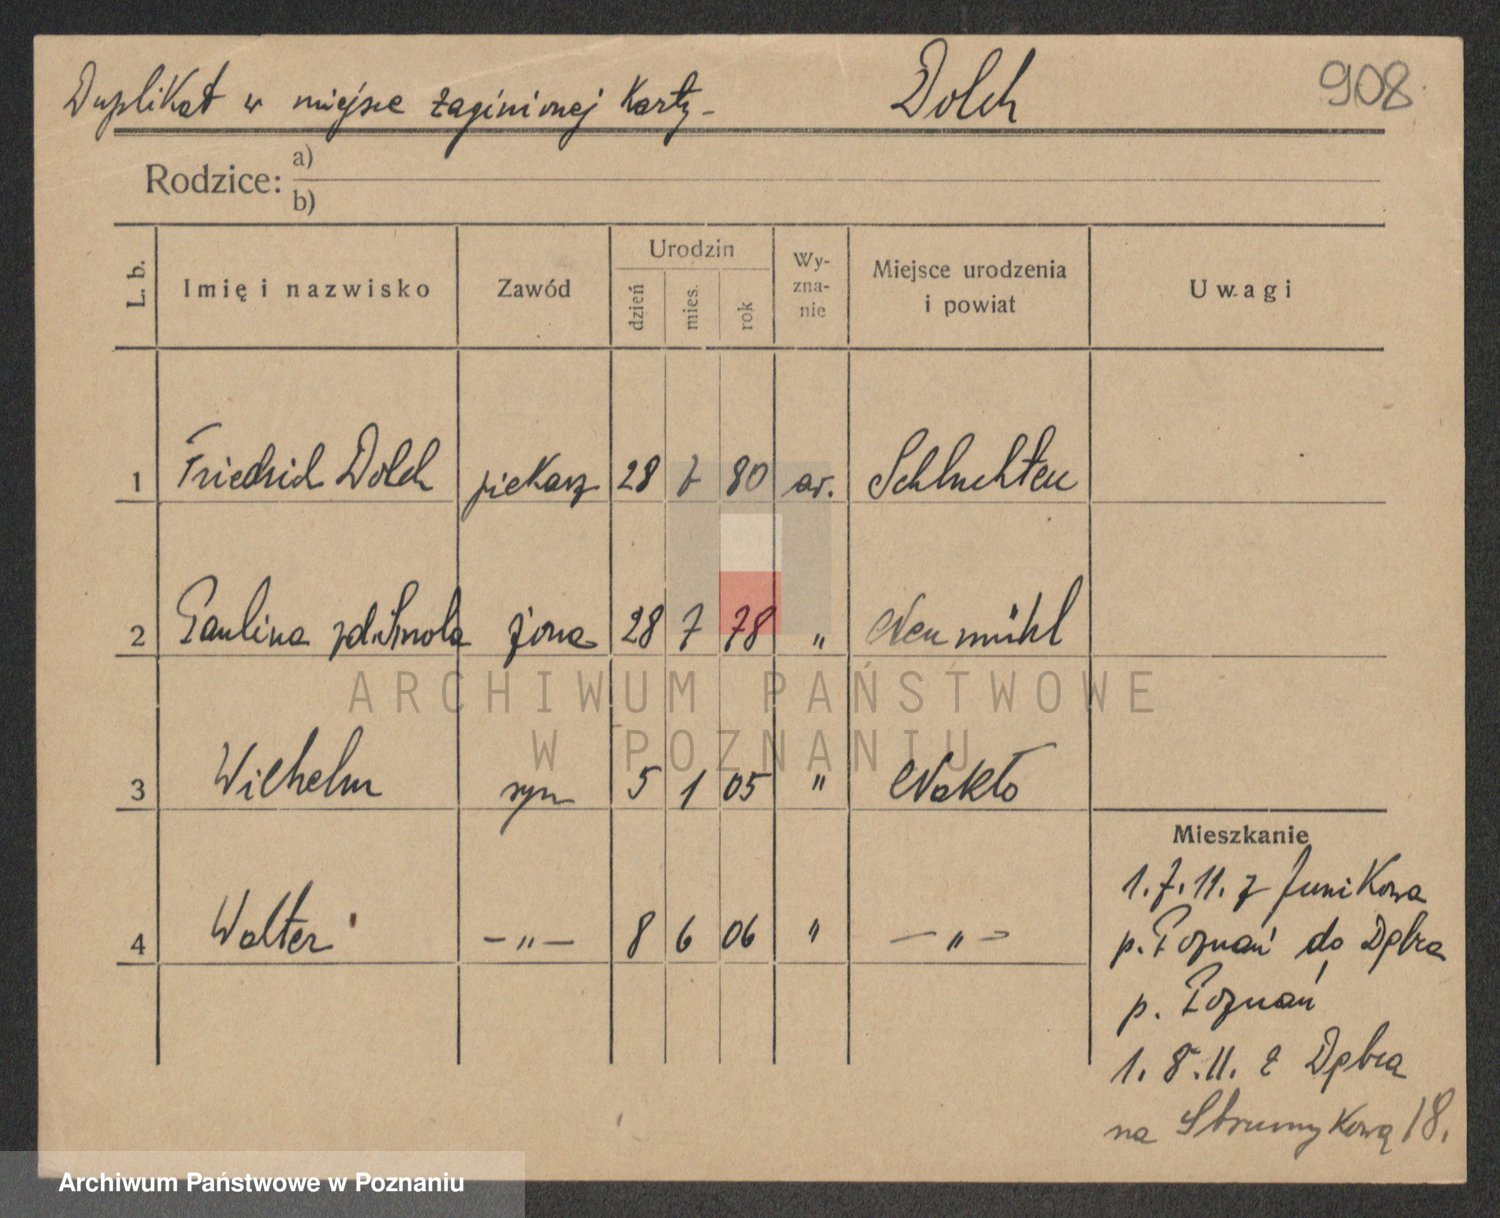 Duplikat w miejsce zaginionej Karty - Dolch 908
Rodzice: a)
b)
L. b. Imię i nazwisko Zawód Urodzin dzień mies. rok Wy-zna-nie Miejsce urodzenia i powiat Uwagi
1 Friedrich Dolch piekarz 28 7 80 Schluchten
2 Paulina żona 28 7 78 " Neumühl
3 Wilhelm syn 5 1 05 " Nakło
4 Walter - " - 8 6 06 " - " -
Mieszkanie
1.7.11. z Junikowa
p. Poznań do Dębca
p. Poznań
1.8.11. z Dębca
na Strumykową 18.
ARCHIWUM PAŃSTWOWE
W POZNANIU
Archiwum Państwowe w Poznaniu